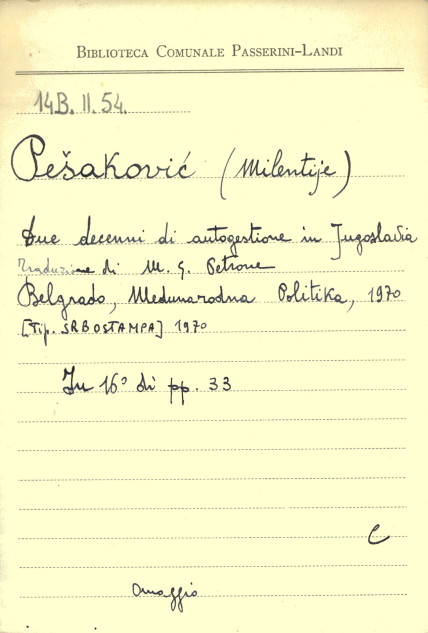 BIBLIOTECA COMUNALE PASSERINI-LANDI
14B. II. 54.
Pešaković (Milentije)
Due decenni di autogestione in Jugoslavia
Traduzione di M. G. Petrone
Belgrado, Međunarodna Politika, 1970
[Tip. SRBOSTAMPA] 1970
In 16° di pp. 33
C
Omaggio